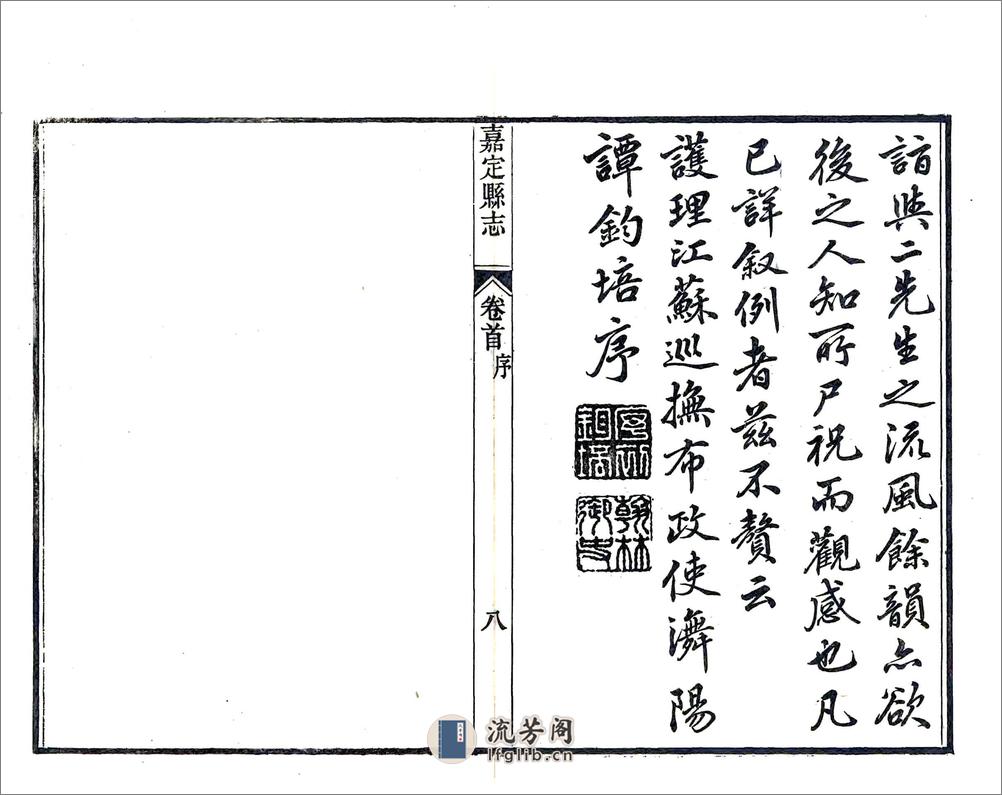 詣與二先生之流風餘韻亦欲
後之人知所尸祝而觀感也凡
已詳叙例者茲不贅云
護理江蘇巡撫布政使㵲陽
譚鈞培序
翰林御史
嘉定縣志
卷首
序
八
流芳阁
lfglib.cn